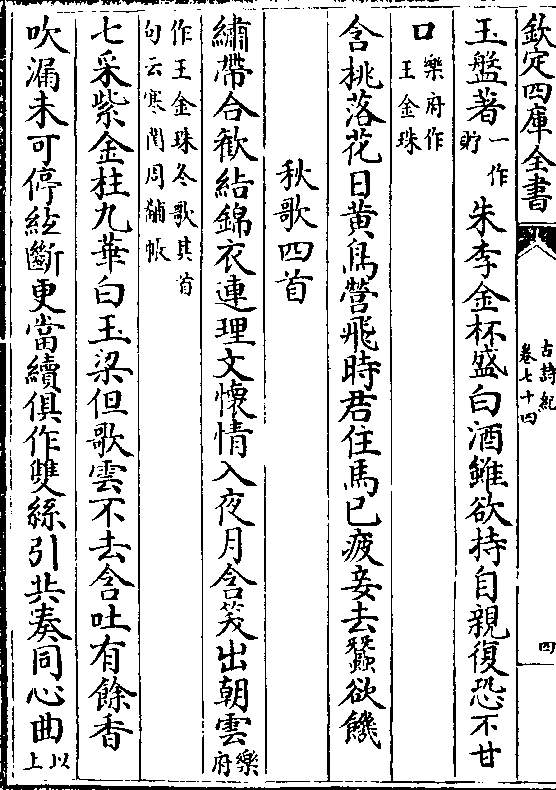 欽定四庫全書
古詩紀
卷七十四
四
玉盤著一作貯朱李金杯盛白酒雖欲持自親復恐不甘
口樂府作王金珠
含桃落花日黄鳥營飛時君住馬已疲妾去蠶欲饑
秋歌四首
繡帶合歡結錦衣連理文懷情入夜月含笑出朝雲樂府
作王金珠冬歌其首句云寒閨周黼帳
七采紫金柱九華白玉梁但歌雲不去含吐有餘香
吹漏未可停絃斷更當續俱作雙絲引共奏同心曲以上